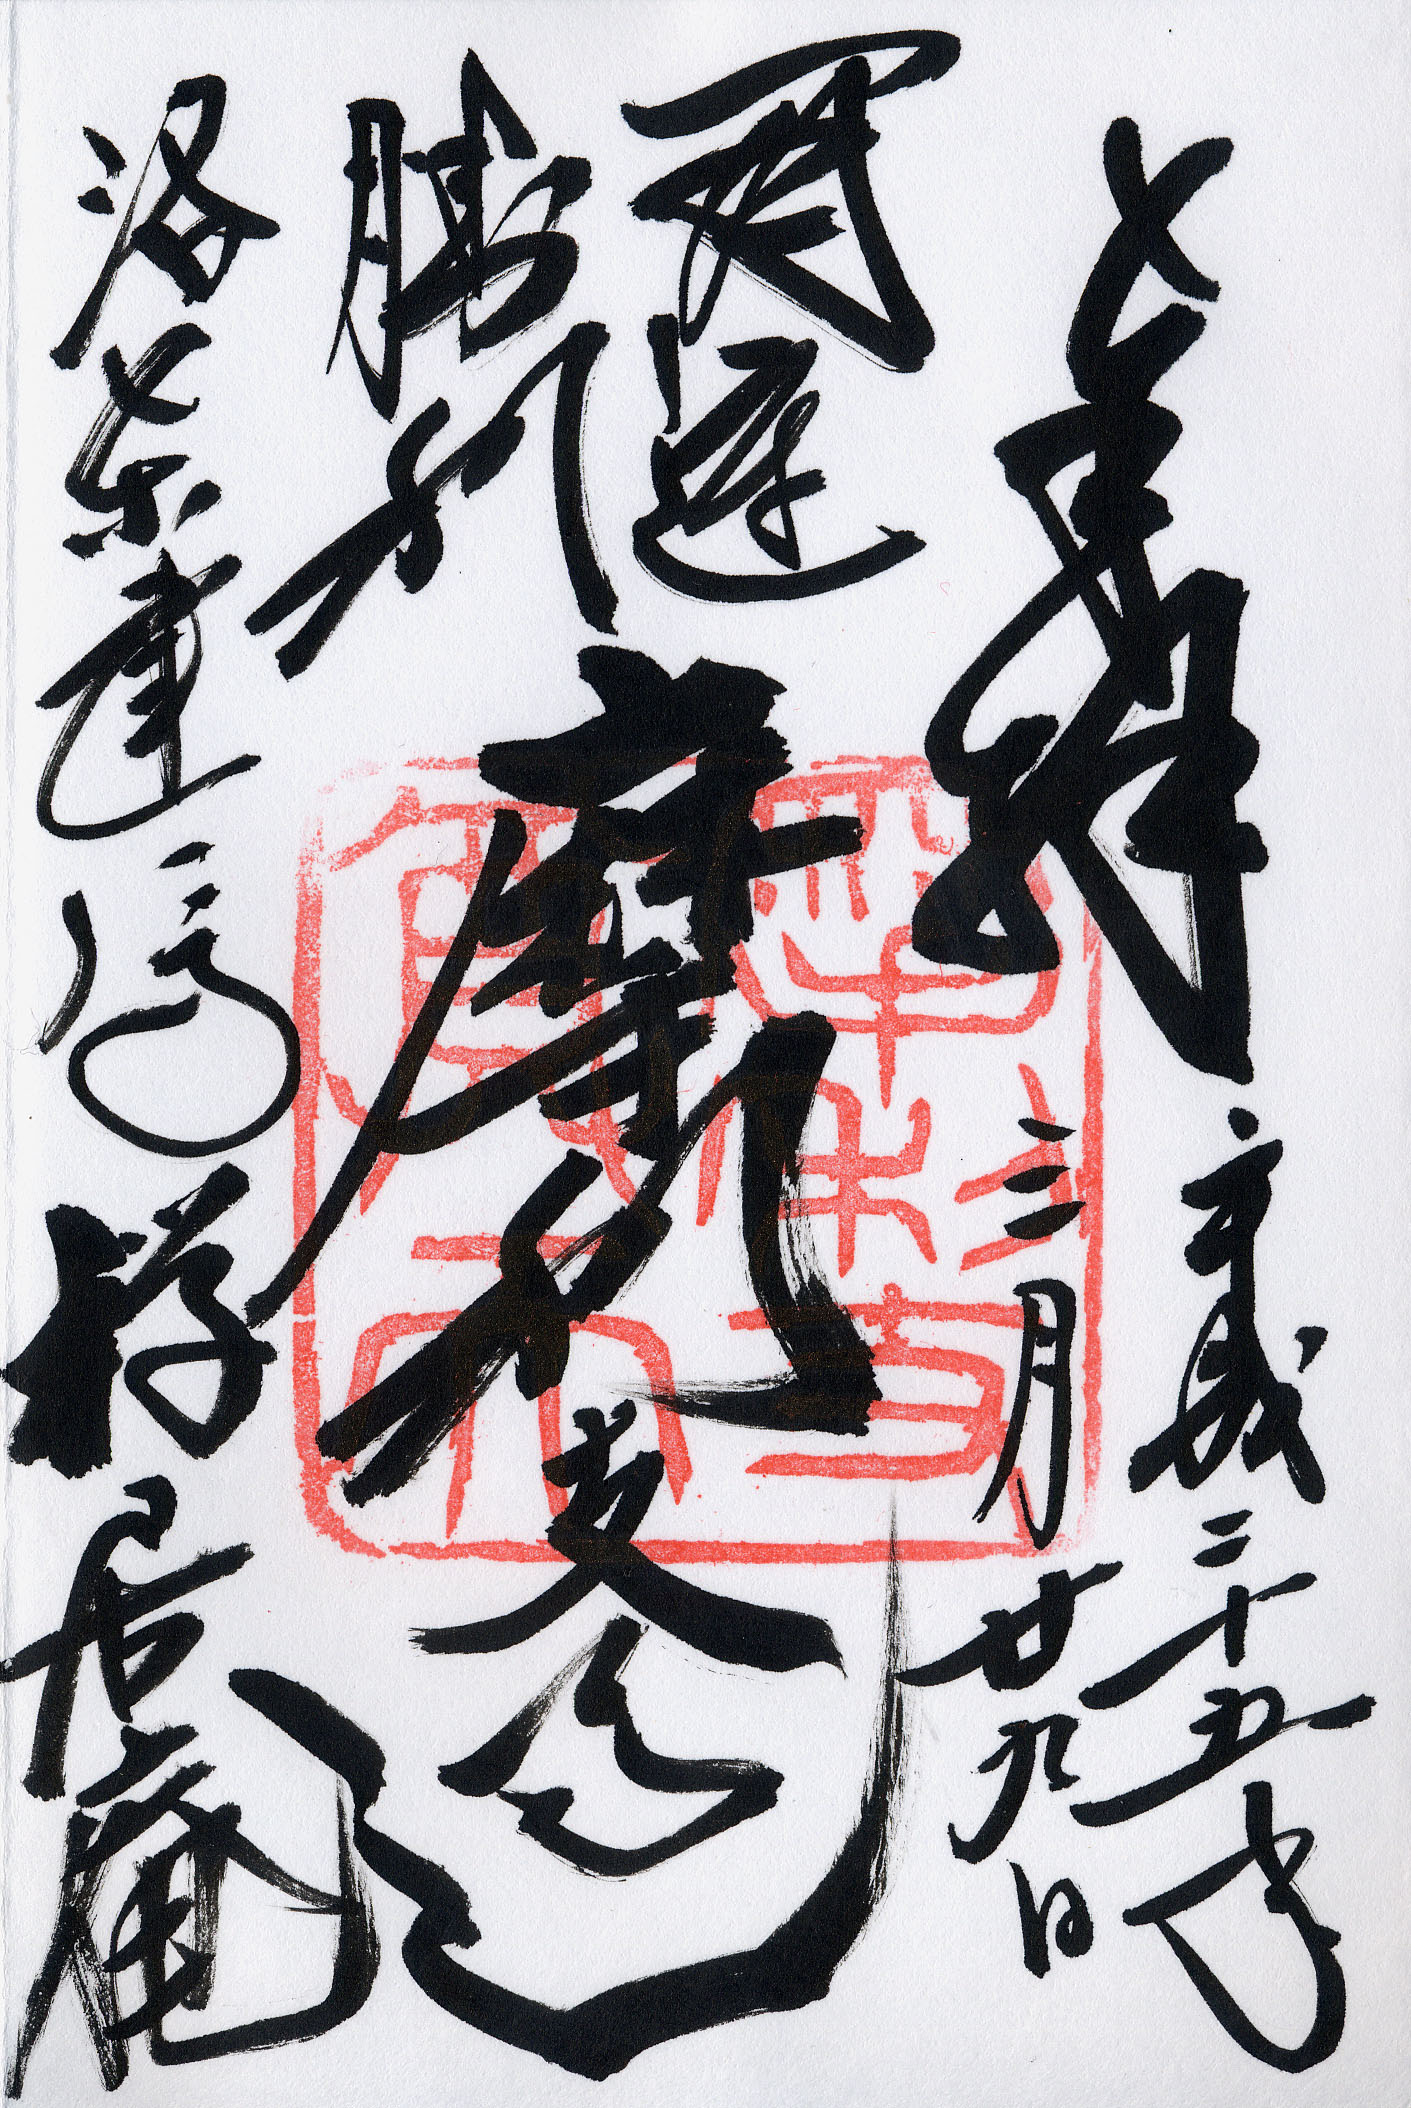 奉拝
平成二十五年
三月廿九日
開運
勝利
摩利支天
洛東建仁寺
禅居庵